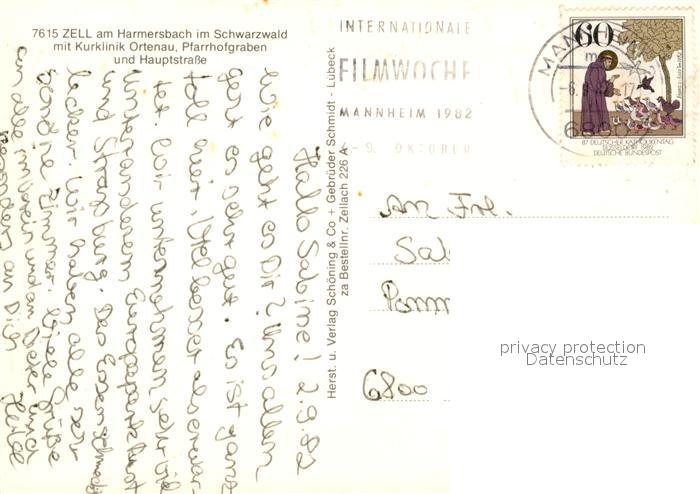 7615 ZELL am Harmersbach im Schwarzwald
mit Kurklinik Ortenau, Pfarrhofgraben
und Hauptstraße
INTERNATIONALE
FILMWOCHE
MANNHEIM 1982
4.-9. OKTOBER
60
87. DEUTSCHER KATHOLIKENTAG
DÜSSELDORF 1982
DEUTSCHE BUNDESPOST
Herst. u. Verlag Schöning & Co + Gebrüder Schmidt - Lübeck
za Bestellnr. Zellach 226
Hallo Sabine! 2.9.82
Wie geht es Dir? Uns allen
geht es sehr gut. Es ist ganz
toll hier. Viel besser als erwar-
tet. Wir unternehmen sehr viel
unter anderem Europapark Rust
und Straßburg. Das Essen schmeckt
lecker. Wir haben alle sehr
schöne Zimmer. Viele Grüße
an alle im Verein und an Dieter und
besonders an Dich
An Frl.
Sab
Pomm
6800
privacy protection
Datenschutz